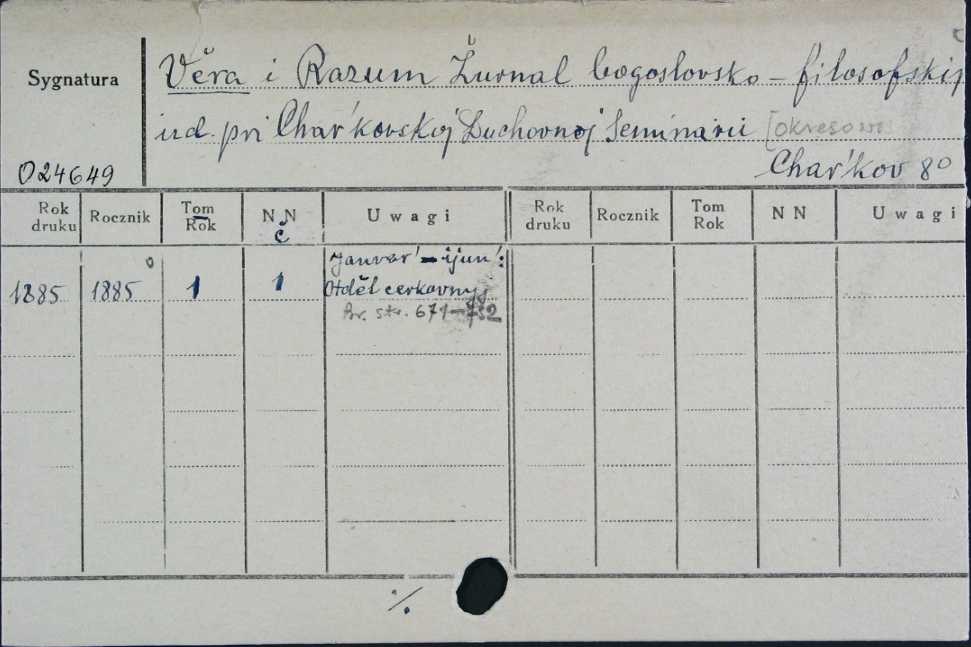 Sygnatura
Věra i Razum Žurnal bogoslovsko-filosofskij
izd. pri Char'kovskoj Duchovnoj Seminarii [okresowe
024649
Char'kov 8°
Rok druku Rocznik Tom Rok NN Uwagi Rok druku Rocznik Tom Rok NN Uwagi
č
Janvar'-ijun':
1885 1885 1 1 Otděl cerkovnyj
Br. str. 671-732
·/.